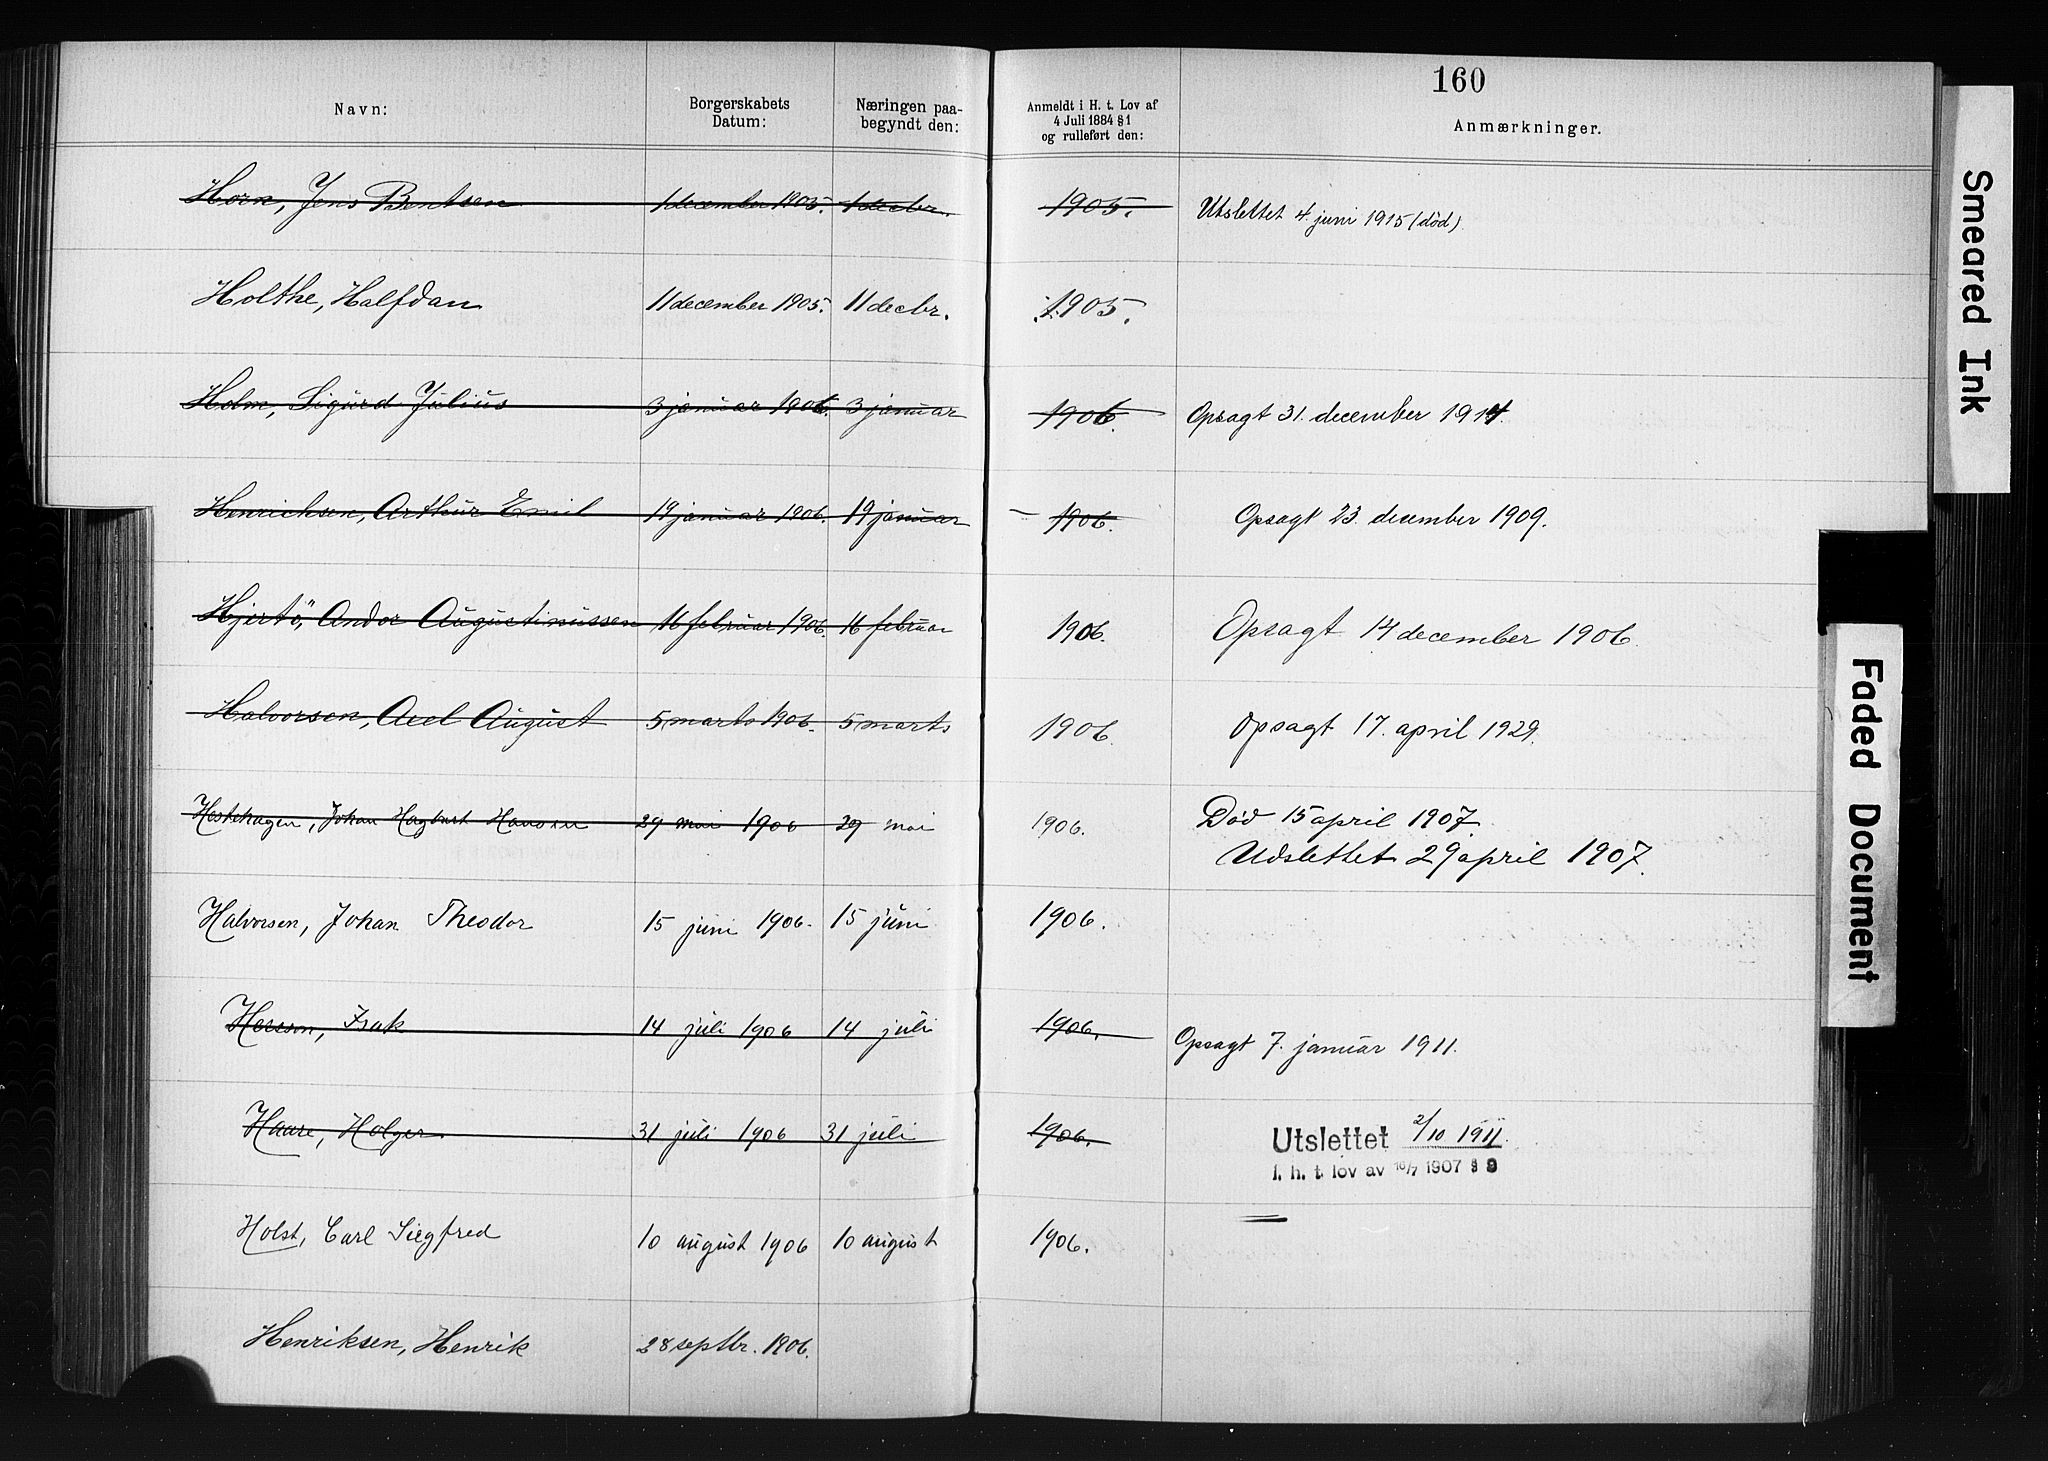 160
Navn: Borgerskabets Datum: Næringen paa-begyndt den: Anmeldt i H. t. Lov af 4 Juli 1884 § 1 og rulleført den: Anmærkninger.
Horn, Jens Bentsen 1 december 1905. 1 decbr. 1905. Utslettet 4. juni 1915 (død).
Holthe, Halfdan 11 december 1905. 11 decbr. 1905.
Holm, Sigurd Julius 3 januar 1906. 3 januar 1906. Opsagt 31. december 1914.
Henrichsen, Arthur Emil 19 januar 1906. 19 januar 1906. Opsagt 23. december 1909.
Hjertö, Andor Augustinussen 16 februar 1906. 16 februar 1906. Opsagt 14 december 1906.
Halvorsen, Axel August 5 marts 1906. 5 marts 1906. Opsagt 17. april 1929.
Hestehagen, Johan Hagbart Hansen 29 mai 1906 29 mai 1906. Død 15 april 1907.
Udslettet 29 april 1907.
Halvorsen, Johan Theodor 15 juni 1906. 15 juni 1906.
Isak 14 juli 1906 14 juli 1906. Opsagt 7. januar 1911.
Haare, Holger 31 juli 1906 31 juli 1906. Utslettet 2/10 1911.
I. h. t. lov av 16/7 1907 § 9
Holst, Carl Siegfred 10 august 1906 10 august 1906.
Henriksen, Henrik 28 septbr. 1906.
Smeared Ink
Faded Document